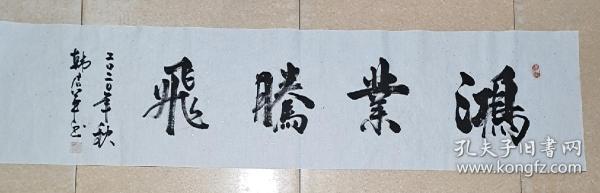 鴻業騰飛
二〇二〇年秋
韩
书
孔夫子旧书网
www.kongfz.com